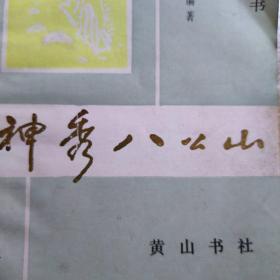 书
编著
神秀八公山
黄山书社